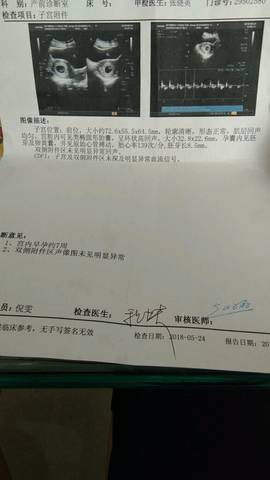 科 别：产前诊断室 床 号： 申检医生：张晓英 门诊号：29502580
检查项目：子宫附件
图像描述：
子宫位置：前位，大小约72.6x55.5x64.5mm，轮廓清晰，形态正常，肌层回声
均匀，宫腔内可见类椭圆形胎囊，呈环状高回声，大小32.8x22.6mm，孕囊内见胚
芽及卵黄囊，并见原始心管搏动，胎心率139次/分，胚芽长8.5mm。
双侧附件区未见明显异常回声。
CDFI：子宫及双侧附件区未探及明显异常血流信号。
断意见：
1、宫内早孕约7周
2、双侧附件区声像图未见明显异常
员：倪雯 检查医生： 审核医师：
临床参考，无手写签名无效 检查日期：2018-05-24 报告日期：20